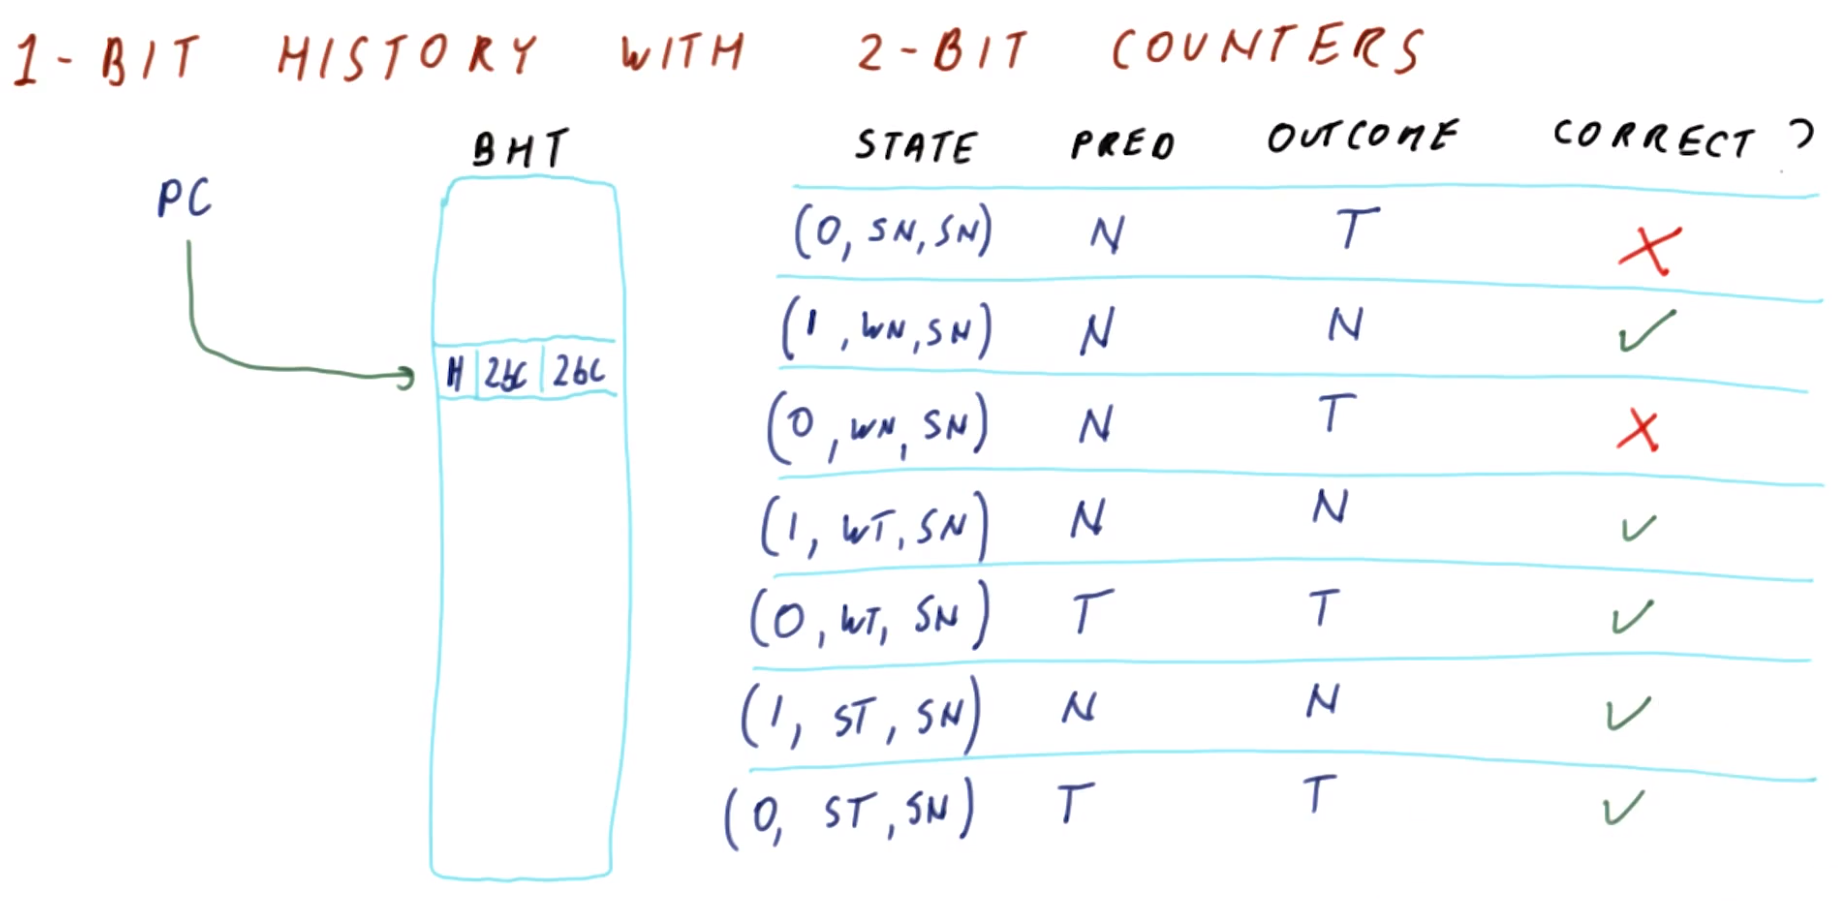 1-BIT HISTORY WITH 2-BIT COUNTERS
BHT STATE PRED OUTCOME CORRECT ?
PC
(0, SN, SN) N T ✗
(1, WN, SN) N N ✓
H 2bC 2bC
(0, WN, SN) N T ✗
(1, WT, SN) N N ✓
(0, WT, SN) T T ✓
(1, ST, SN) N N ✓
(0, ST, SN) T T ✓